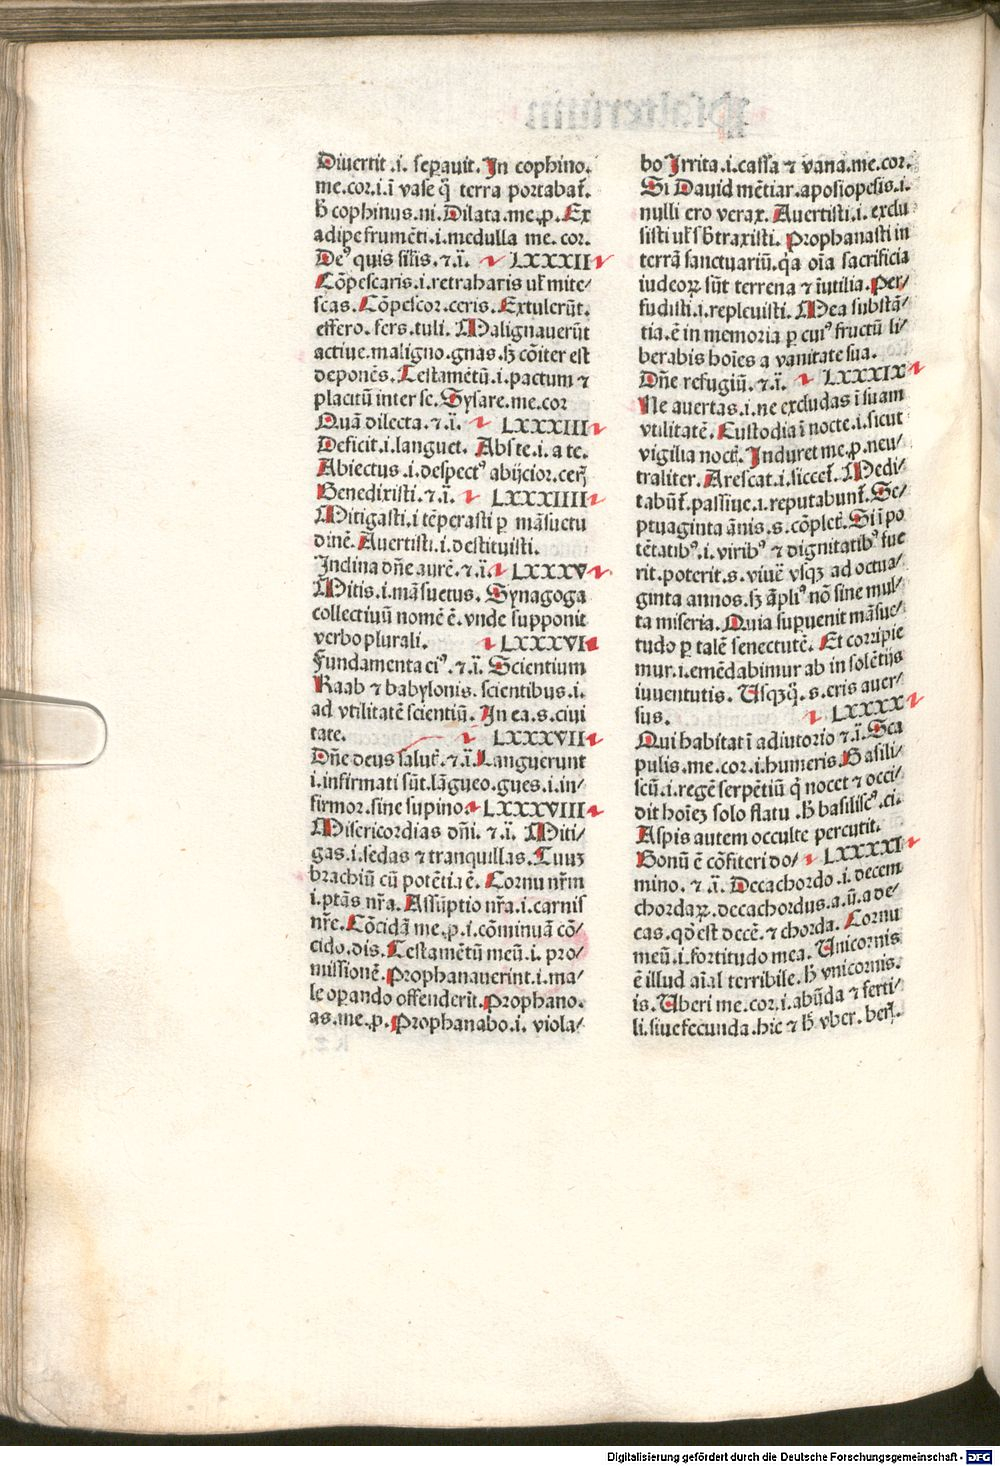 Diuertit .i. seꝑauit. In cophino.
me.cor.i.ī vase q̄ terra portabat̄.
ħ cophinus.ni. Dilata.me.ꝓ. Ex
adipe frumēti.i.medulla me. cor.
Deꝰ quis sil̄is. ⁊.ī. LXXXII
Cōpescaris.i.retraharis ul̄ mite/
scas. Cōpescor.ceris. Extulerūt.
effero. fers.tuli. Malignauerūt
actiue.maligno.gnas.ꜩ cōiter est
deponēs. Testamētū.i.pactum ⁊
placitū inter se. Sysare.me.cor
Quā dilecta.⁊.ī. LXXXIII
Deficit.i.languet. Abs te.i.a te.
Abiectus.i.despectꝰ abijcior.ceri̅
Benedixisti.⁊.ī. LXXXIIII
Mitigasti.i tēperasti ꝑ māsuetu
dinē. Auertisti.i.destituisti.
Inclina dn̄e aurē.⁊.ī. LXXXV
Mitis.i.māsuetus. Synagoga
collectiuū nomē ē.vnde supponit
verbo plurali. LXXXVI
Fundamenta eiꝰ.⁊.ī. Scientium
Raab ⁊ babylonis. scientibus.i.
ad vtilitatē scientiū. In ea.s.ciui
tate. LXXXVII
Dn̄e deus salut̄.⁊.ī. Languerunt
i.infirmati sūt.lāgueo.gues.i.in/
firmor.sine supino. LXXXVIII
Misericordias dn̄i.⁊.ī. Miti/
gas.i.sedas ⁊ tranquillas. Tuuꝫ
brachiū cū potētia ē. Cornu nr̄m
i.ptās nr̄a. Assūptio nr̄a.i.carnis
nr̄e. Cōcidā me.ꝓ.i.cōminuā cō/
cido.dis. Testamētū meū.i.pro/
missionē. Prophanauerint.i.ma/
le oꝑando offenderīt. Prophano.
as.me.ꝓ. Prophanabo.i. viola/
bo Irrita.i.cassa ⁊ vana.me.cor.
Si Dauid mētiar.aposiopesis.i.
nulli ero verax. Auertisti.i.exclu
sisti ul̄ sb̄traxisti. Prophanasti in
terrā sanctuariū.q̄a oīa sacrificia
iudeoꝝ sūt terrena ⁊ īutilia. Per/
fudisti.i.repleuisti. Mea substā/
tia.ē in memoria ꝑ cuiꝰ fructū li/
berabis hoīes a vanitate sua.
Dn̄e refugiū.⁊.ī. LXXXIX
Ne auertas.i.ne excludas ī suam
vtilitatē. Custodia ī nocte.i.sicut
vigilia noct̄. Induret me.ꝓ.neu/
traliter. Arescat.i.siccet̄. Medi/
tabūt̄.passiue.i.reputabunt̄. Se/
ptuaginta ānis.s.cōplet̄. Si ī po
tētatibꝰ.i.viribꝰ ⁊ dignitatibꝰ fue
rit.poterit.s.viuē vsqꝫ ad octua/
ginta annos.ꜩ āpliꝰ nō sine mul/
ta miseria. Quia suꝑuenit māsue/
tudo ꝑ talē senectutē. Et corripie
mur.i.emēdabimur ab in solētijs
iuuentutis. Usqꝫq̄.s.eris auer/
sus. LXXXX
Qui habitat ī adiutorio ⁊.ī. Sca
pulis.me.cor.i.humeris. Basili/
scū.i.regē serpētiū q̄ nocet ⁊ occi/
dit hoīeꝫ solo flatu .ħ basiliscꝰ.ci.
Aspis autem occulte percutit.
Bonū ē cōfiteri do/ LXXXXI
mino. ⁊ ā. Decachordo.i.decem
chordaꝝ.decachordus.a.ū.a de/
cas.qd̄ est decē.⁊ chorda. Cornu
meū.i.fortitudo mea. Unicornis
ē illud aīal terribile.ħ vnicornis.
is. Uberi me.cor.i.abūda ⁊ ferti/
li.siue fecunda.hic ⁊ ħ vber. beri̅.
Digitalisierung gefördert durch die Deutsche Forschungsgemeinschaft - DFG